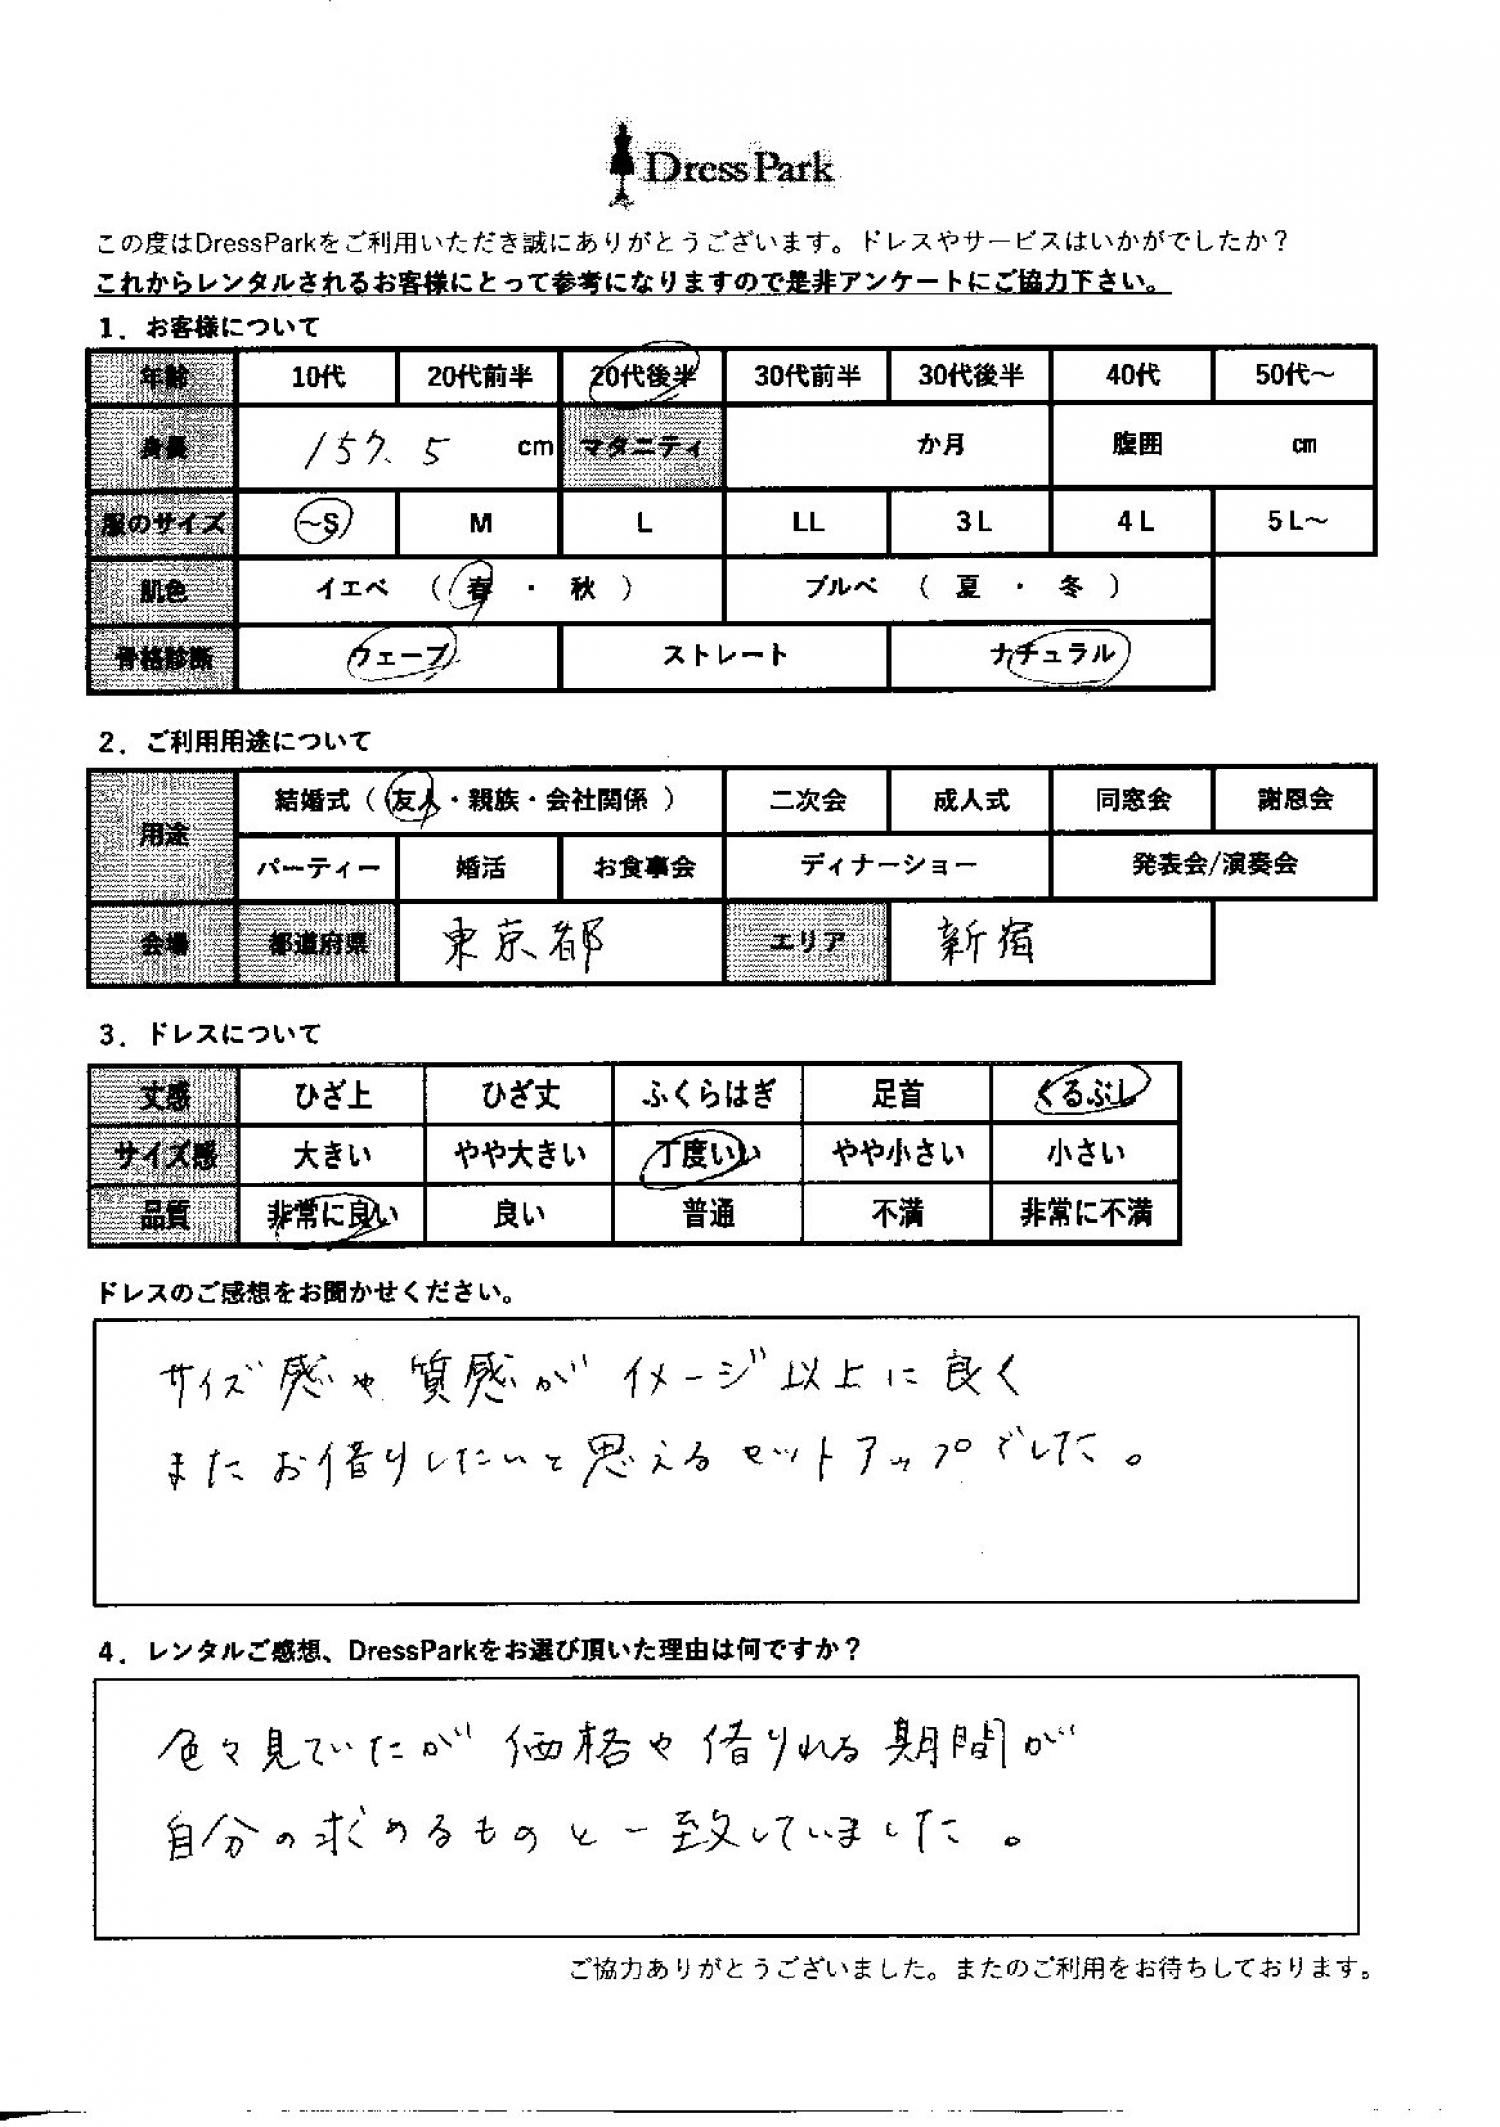 DressPark
この度はDressParkをご利用いただき誠にありがとうございます。ドレスやサービスはいかがでしたか？
これからレンタルされるお客様にとって参考になりますので是非アンケートにご協力下さい。
1．お客様について
年齢 10代 20代前半 20代後半 30代前半 30代後半 40代 50代～
身長 157.5 cm マタニティ か月 腹囲 cm
服のサイズ ～S M L LL 3L 4L 5L～
肌色 イエベ （ 春 ・ 秋 ） ブルべ （ 夏 ・ 冬 ）
骨格診断 ウェーブ ストレート ナチュラル
2．ご利用用途について
用途 結婚式（ 友人・親族・会社関係 ） 二次会 成人式 同窓会 謝恩会
パーティー 婚活 お食事会 ディナーショー 発表会/演奏会
会場 都道府県 東京都 エリア 新宿
3．ドレスについて
丈感 ひざ上 ひざ丈 ふくらはぎ 足首 くるぶし
サイズ感 大きい やや大きい 丁度いい やや小さい 小さい
品質 非常に良い 良い 普通 不満 非常に不満
ドレスのご感想をお聞かせください。
サイズ感や質感がイメージ以上に良く
またお借りしたいと思えるセットアップでした。
4．レンタルご感想、DressParkをお選び頂いた理由は何ですか？
色々見ていたが価格や借りれる期間が
自分の求めるものと一致していました。
ご協力ありがとうございました。またのご利用をお待ちしております。